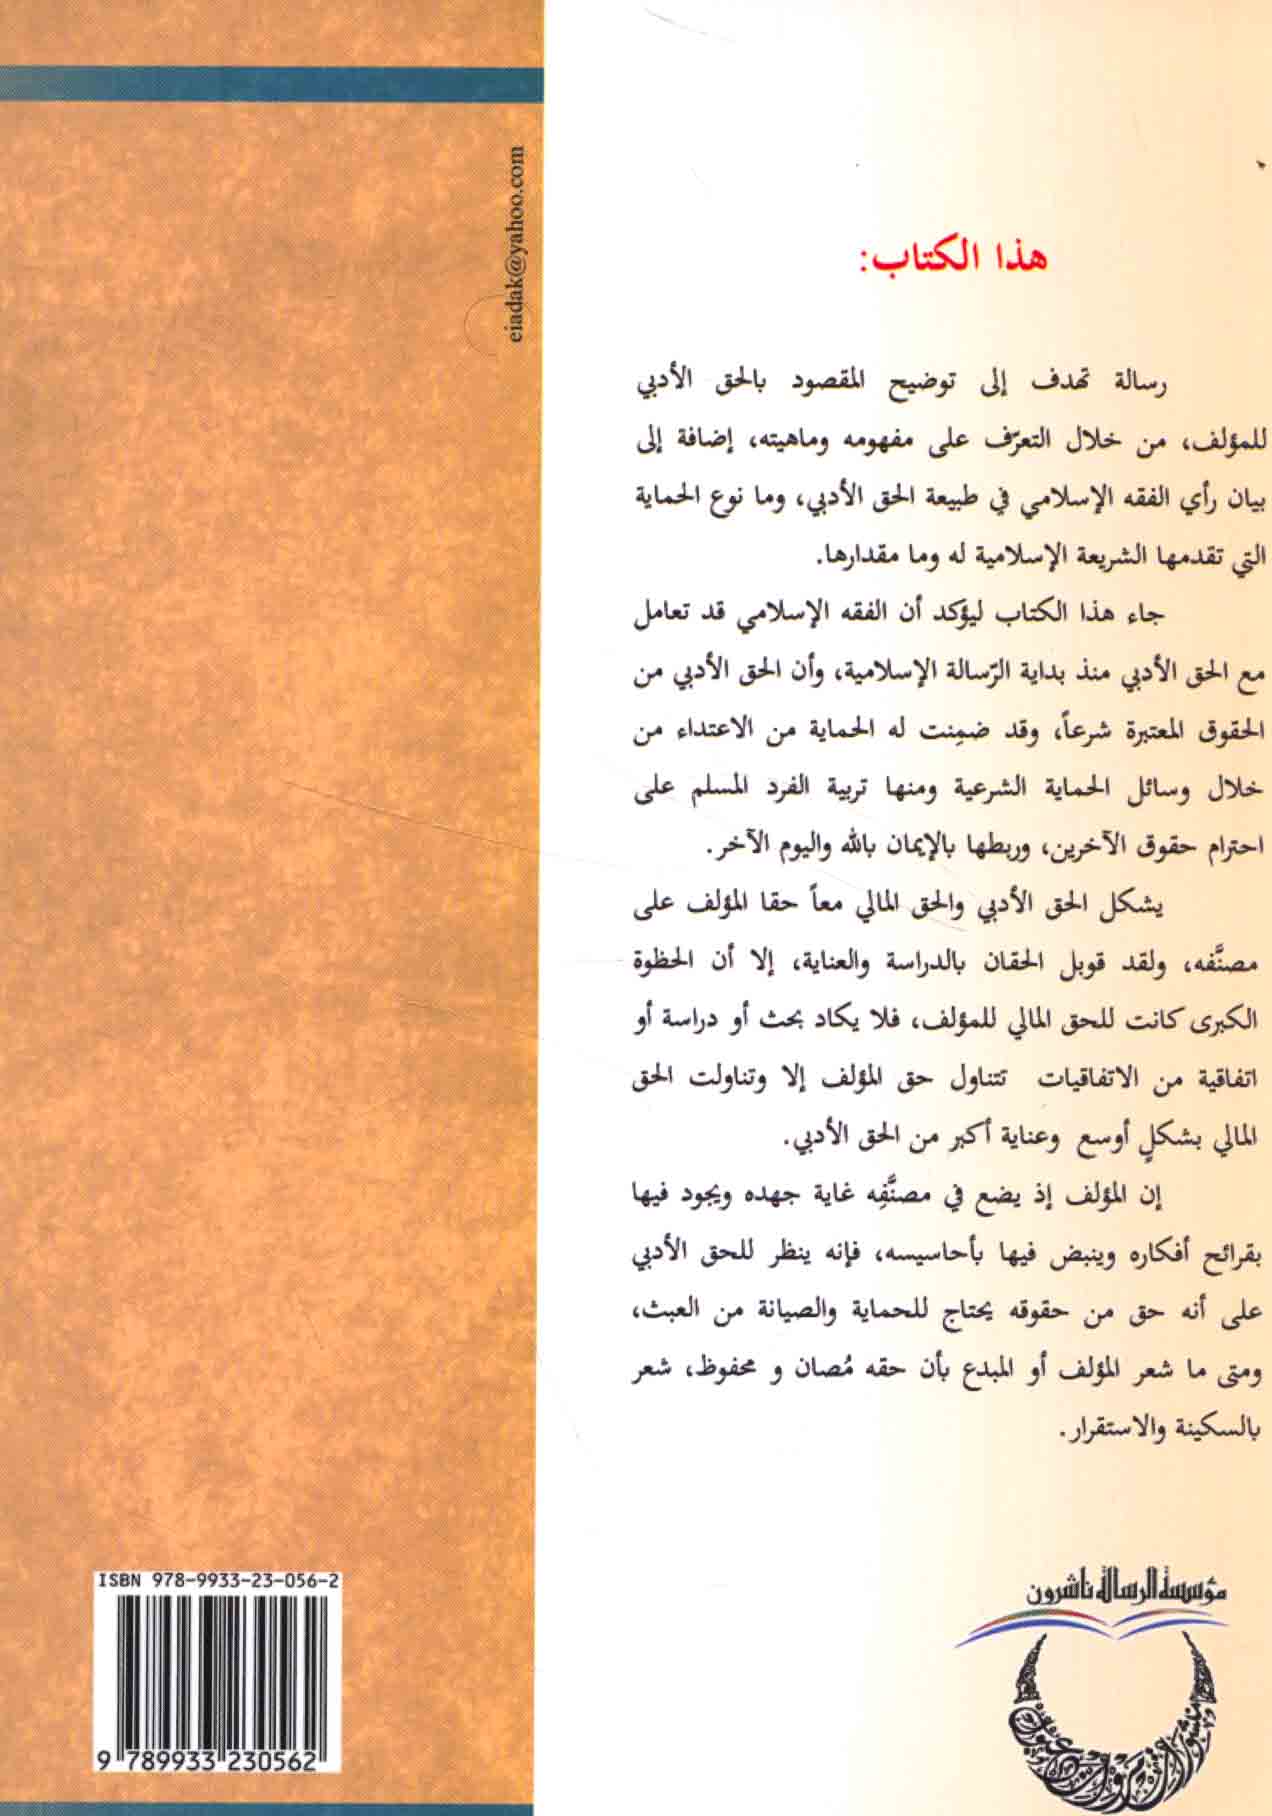 هذا الكتاب:
رسالة تهدف إلى توضيح المقصود بالحق الأدبي
للمؤلف، من خلال التعرّف على مفهومه وماهيته، إضافة إلى
بيان رأي الفقه الإسلامي في طبيعة الحق الأدبي، وما نوع الحماية
التي تقدمها الشريعة الإسلامية له وما مقدارها.
جاء هذا الكتاب ليؤكد أن الفقه الإسلامي قد تعامل
مع الحق الأدبي منذ بداية الرّسالة الإسلامية، وأن الحق الأدبي من
الحقوق المعتبرة شرعاً، وقد ضمِنت له الحماية من الاعتداء من
خلال وسائل الحماية الشرعية ومنها تربية الفرد المسلم على
احترام حقوق الآخرين، وربطها بالإيمان بالله واليوم الآخر.
يشكل الحق الأدبي والحق المالي معاً حقا المؤلف على
مصنَّفه، ولقد قوبل الحقان بالدراسة والعناية، إلا أن الحظوة
الكبرى كانت للحق المالي للمؤلف، فلا يكاد بحث أو دراسة أو
اتفاقية من الاتفاقيات تتناول حق المؤلف إلا وتناولت الحق
المالي بشكلٍ أوسع وعناية أكبر من الحق الأدبي.
إن المؤلف إذ يضع في مصنَّفِه غاية جهده ويجود فيها
بقرائح أفكاره وينبض فيها بأحاسيسه، فإنه ينظر للحق الأدبي
على أنه حق من حقوقه يحتاج للحماية والصيانة من العبث،
ومتى ما شعر المؤلف أو المبدع بأن حقه مُصان و محفوظ، شعر
بالسكينة والاستقرار.
مؤسسة الرسالة ناشرون
eiadak@yahoo.com
ISBN 978-9933-23-056-2
9 789933 230562